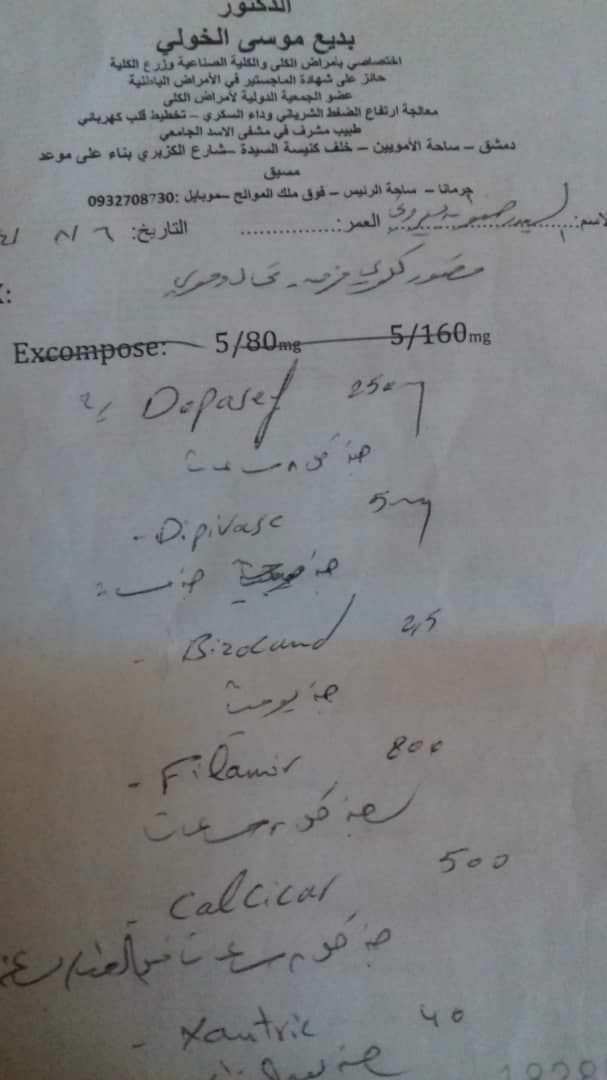 الدكتور
بديع موسى الخولي
اختصاصي بأمراض الكلى والكلية الصناعية وزرع الكلية
حائز على شهادة الماجستير في الأمراض الباطنية
عضو الجمعية الدولية لأمراض الكلى
معالجة ارتفاع الضغط الشرياني وداء السكري – تخطيط قلب كهربائي
طبيب مشرف في مشفى الاسد الجامعي
دمشق – ساحة الأمويين – خلف كنيسة السيدة – شارع الكزبري بناء على موعد
مسبق
جرمانا – ساحة الرئيس – فوق ملك الموالح – موبايل :0932708730
لاسم: السيد العمر: التاريخ: ٦ / ٨
Excompose: 5/80mg 5/160mg
Dopasef 250mg
حبة كل ٨ ساعات
- Dipivasc 5mg
حبة حبة مساء
- Bizocand 2,5
حبة يوميا
- Filamir 800
حبة كل ٨ ساعات
- Calcicar 500
حبة كل ٨ ساعات
- Xantric 40
حبة